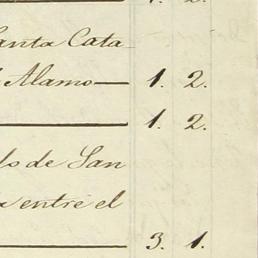 1. 2.
Santa Cata-
Alamo— 1. 2.
1. 2.
de San
entre el
3. 1.